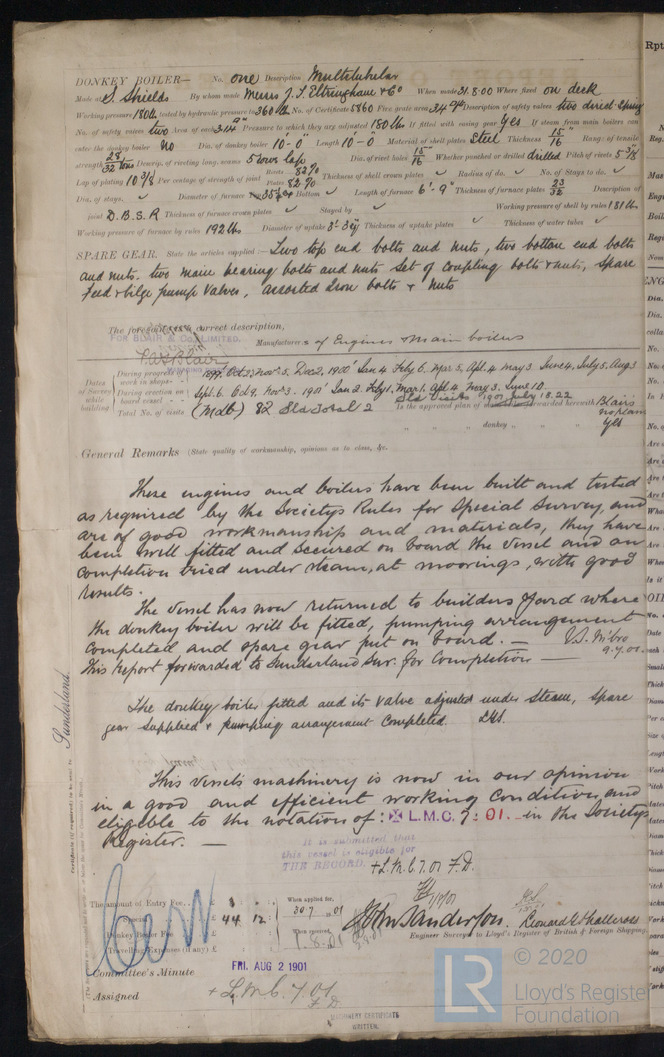 DONKEY BOILER— No. one Description Multitubular
Made at S. Shields By whom made Messrs J. T. Eltringham & Co When made 31.8.00 Where fixed on deck
Working pressure 180 lb tested by hydraulic pressure to 360 lb No. of Certificate 5860 Fire grate area 34 Description of safety valves two direct spring
No. of safety valves two Area of each 3.14 Pressure to which they are adjusted 180 lbs If fitted with easing gear yes If steam from main boilers can
enter the donkey boiler no Dia. of donkey boiler 10'-0" Length 10'-0" Material of shell plates Steel Thickness 15/16 Range of tensile
strength 28/32 tons Descrip. of riveting long. seams Dia. of rivet holes 15/16 Whether punched or drilled drilled Pitch of rivets 5 7/8
Lap of plating 10 3/8 Per centage of strength of joint Rivets 82% Plates 82.% Thickness of shell crown plates Radius of do. No. of Stays to do.
Dia. of stays. Diameter of furnace Bottom Length of furnace 6'-9" Thickness of furnace plates 23/32 Description of
joint D.B.S.R Thickness of furnace crown plates Stayed by Working pressure of shell by rules 181 lb
Working pressure of furnace by rules 192 lbs Diameter of uptake Thickness of uptake plates Thickness of water tubes
SPARE GEAR. State the articles supplied:— Two top end bolts and nuts, two bottom end bolts
and nuts. two main bearing bolts and nuts set of coupling bolts & nuts, spare
feed & bilge pump valves, assorted iron bolts & nuts
The foregoing is a correct description,
FOR BLAIR & CO. LIMITED. Manufacturers of Engines & Main boilers
Dates of Survey while building
During progress of work in shops - - Oct 23, Nov 5. Dec 2, 1900 Jan 4 Feby 6. Mar 5, Apl. 4 may 3. June 4, July 5, Aug 3
During erection on board vessel - - Sept. 6. Oct 9, Nov 3. - 1901 Jan 2. Feby 1, Mar 1, Apl 4 May 3, June 10.
1901 July 18.22
Total No. of visits (Mdb) 82 Sld Total 2 Is the approved plan of forwarded herewith
" " " donkey " " " yes
General Remarks (State quality of workmanship, opinions as to class, &c.
These engines and boilers have been built and tested
as required by the Societys Rules for Special Survey, and
are of good workmanship and materials, they have
been well fitted and secured on board the vessel and on
completion tried under steam, at moorings, with good
results.
The vessel has now returned to builders yard where
the donkey boiler will be fitted, pumping arrangement
completed and spare gear put on board. —
This Report forwarded to Sunderland Sur. for Completion —
The donkey boiler fitted and its valve adjusted under steam, spare
gear supplied & pumping arrangement completed.
This vessel's machinery is now in our opinion
in a good and efficient working condition and
eligible to the notation of : ✠ L.M.C. 7: 01. — in the Society's
Register. —
It is submitted that
this vessel is eligible for
THE RECORD. + L.M.C. 7.01 F.D.
The amount of Entry Fee . . £ When applied for,
Special £ 44 : 12 : 30 7 01
Donkey Boiler Fee £ When received,
Travelling Expenses (if any) £ 1.8.01
John Sanderson. Leonard E Shallcross
Engineer Surveyor to Lloyd's Register of British & Foreign Shipping.
Committee's Minute FRI. AUG 2 1901
Assigned + L.M.C. 7.01
F.D
MACHINERY CERTIFICATE
WRITTEN.
Certificate (if required) to be sent to Sunderland.
© 2020
LR
Lloyd's Register
Foundation